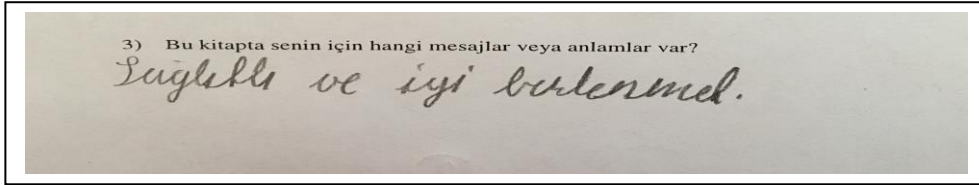 3) Bu kitapta senin için hangi mesajlar veya anlamlar var?
Sağlıklı ve iyi beslenmek.